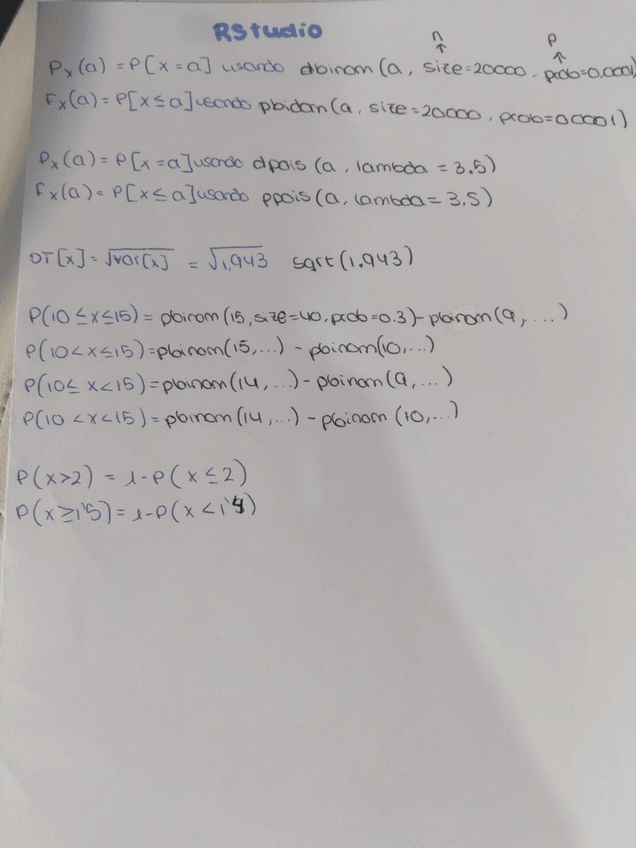 RStudio
n p
↑ ↑
Px(a) = P[x=a] usando dbinom(a, size=20000, prob=0.0001)
Fx(a) = P[x≤a] usando pbidom(a, size=20000, prob=0.0001)
Px(a) = P[x=a] usando dpois(a, lambda = 3.5)
Fx(a) = P[x≤a] usando ppois(a, lambda = 3.5)
DT[x] = √var[x] = √1,943 sqrt(1.943)
P(10≤x≤15) = pbinom(15, size=40, prob=0.3) - pbinom(9, ...)
P(10<x≤15) = pbinom(15,...) - pbinom(10,...)
P(10≤x<15) = pbinom(14,...) - pbinom(9,...)
P(10<x<15) = pbinom(14,...) - pbinom(10,...)
P(x>2) = 1-P(x≤2)
P(x≥1'5) = 1-P(x<1'4)